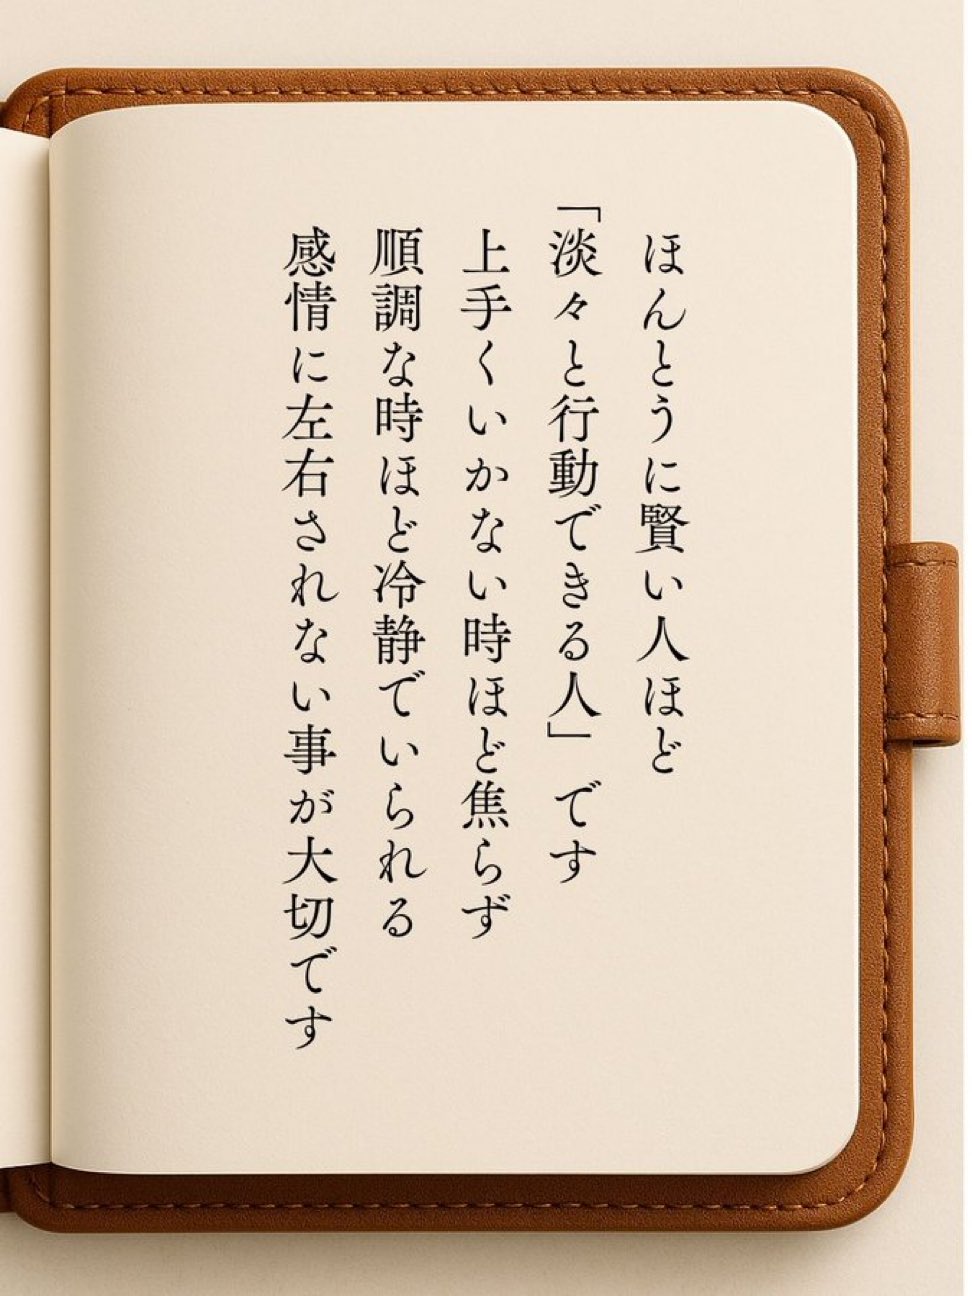 ほんとうに賢い人ほど
「淡々と行動できる人」です
上手くいかない時ほど焦らず
順調な時ほど冷静でいられる
感情に左右されない事が大切です